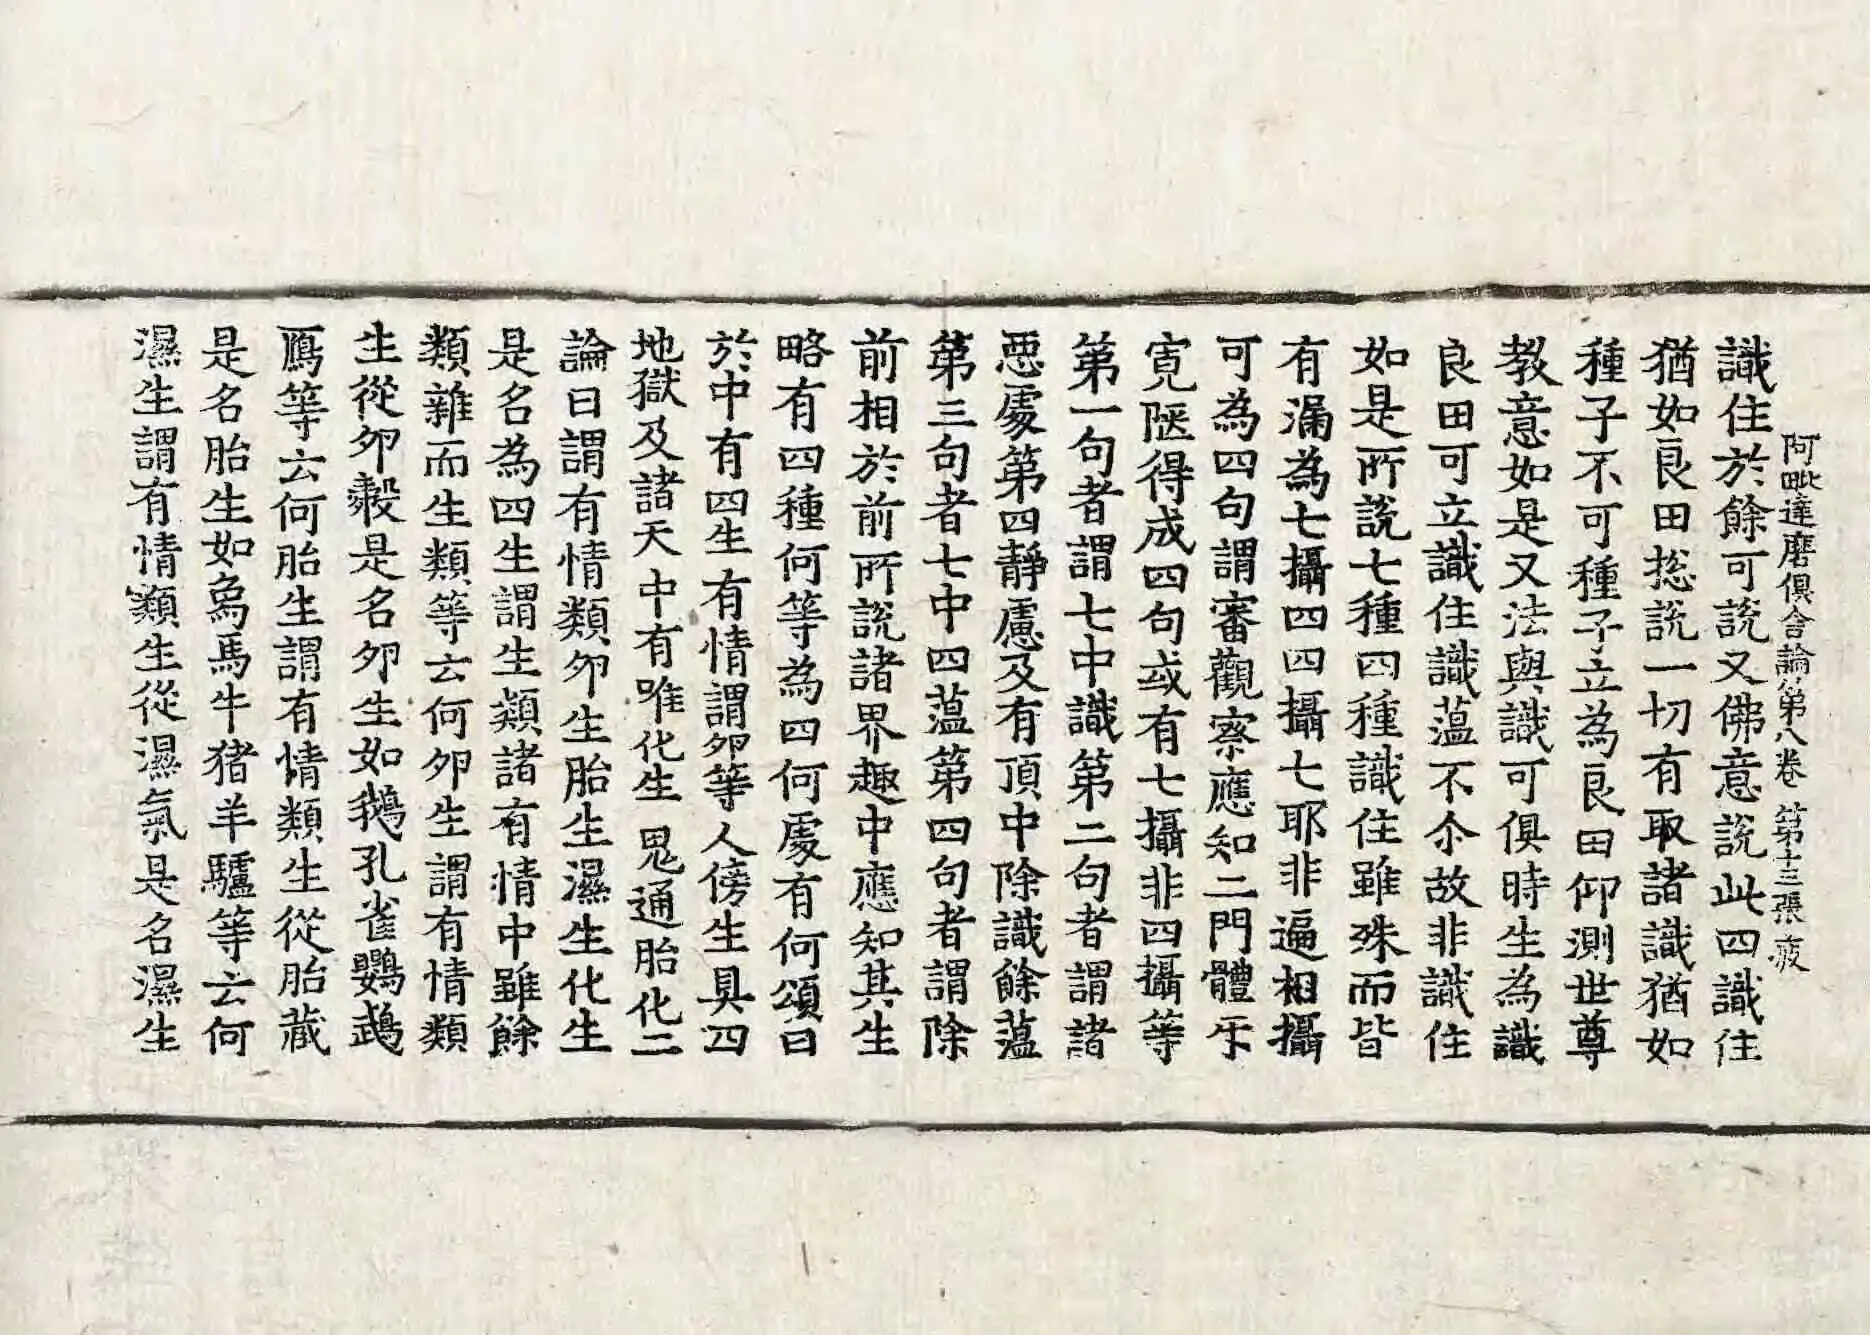 阿毗達磨俱舍論第八卷 第十三張 疲
識住於餘可說又佛意說此四識住
猶如良田捴說一切有取諸識猶如
種子不可種子立為良田仰測世尊
教意如是又法與識可俱時生為識
良田可立識住識薀不尒故非識住
如是所說七種四種識住雖殊而皆
有漏為七攝四四攝七耶非遍相攝
可為四句謂審觀察應知二門體乑
寛陿得成四句或有七攝非四攝等
第一句者謂七中識第二句者謂諸
惡處第四靜慮及有頂中除識餘薀
第三句者七中四薀第四句者謂除
前相於前所說諸界趣中應知其生
略有四種何等為四何處有何頌曰
於中有四生有情謂卵等人傍生具四
地獄及諸天中有唯化生鬼通胎化二
論曰謂有情類卵生胎生濕生化生
是名為四生謂生類諸有情中雖餘
類雜而生類等云何卵生謂有情類
生從卵㲉是名卵生如鵝孔雀鸚鵡
鴈等云何胎生謂有情類生從胎藏
是名胎生如象馬牛猪羊驢等云何
濕生謂有情類生從濕氣是名濕生